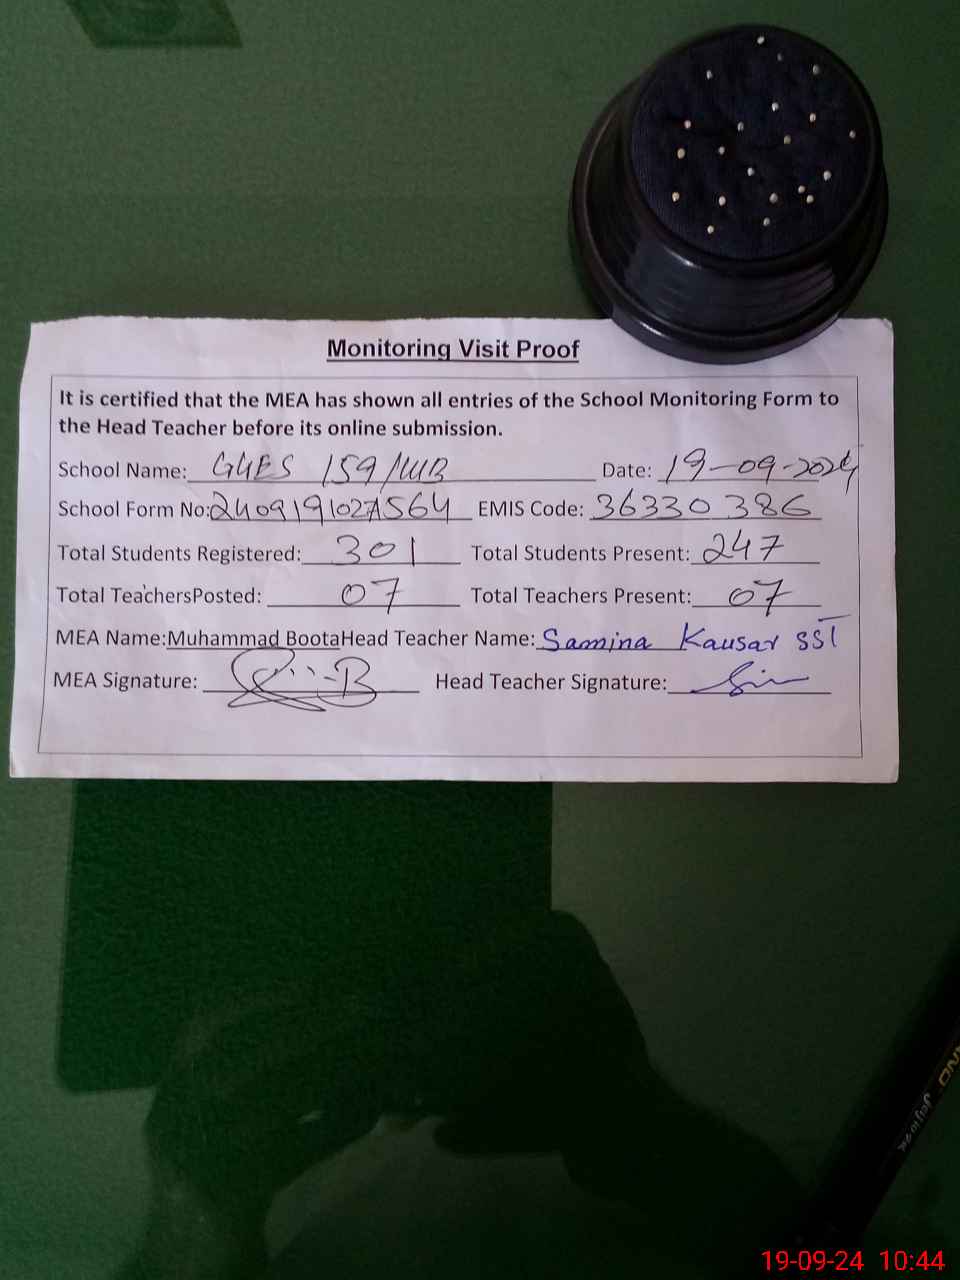 Monitoring Visit Proof
It is certified that the MEA has shown all entries of the School Monitoring Form to
the Head Teacher before its online submission.
School Name: GGES 159/WB Date: 19-09-2024
School Form No: 240919102A564 EMIS Code: 36330386
Total Students Registered: 301 Total Students Present: 247
Total TeachersPosted: 07 Total Teachers Present: 07
MEA Name:Muhammad BootaHead Teacher Name: Samina Kausar SST
MEA Signature: Head Teacher Signature:
19-09-24 10:44